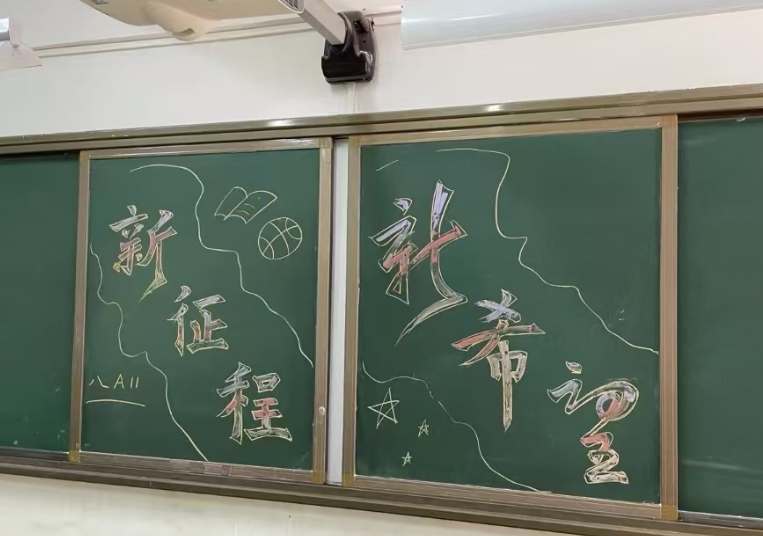 新征程
八 A11
新希望